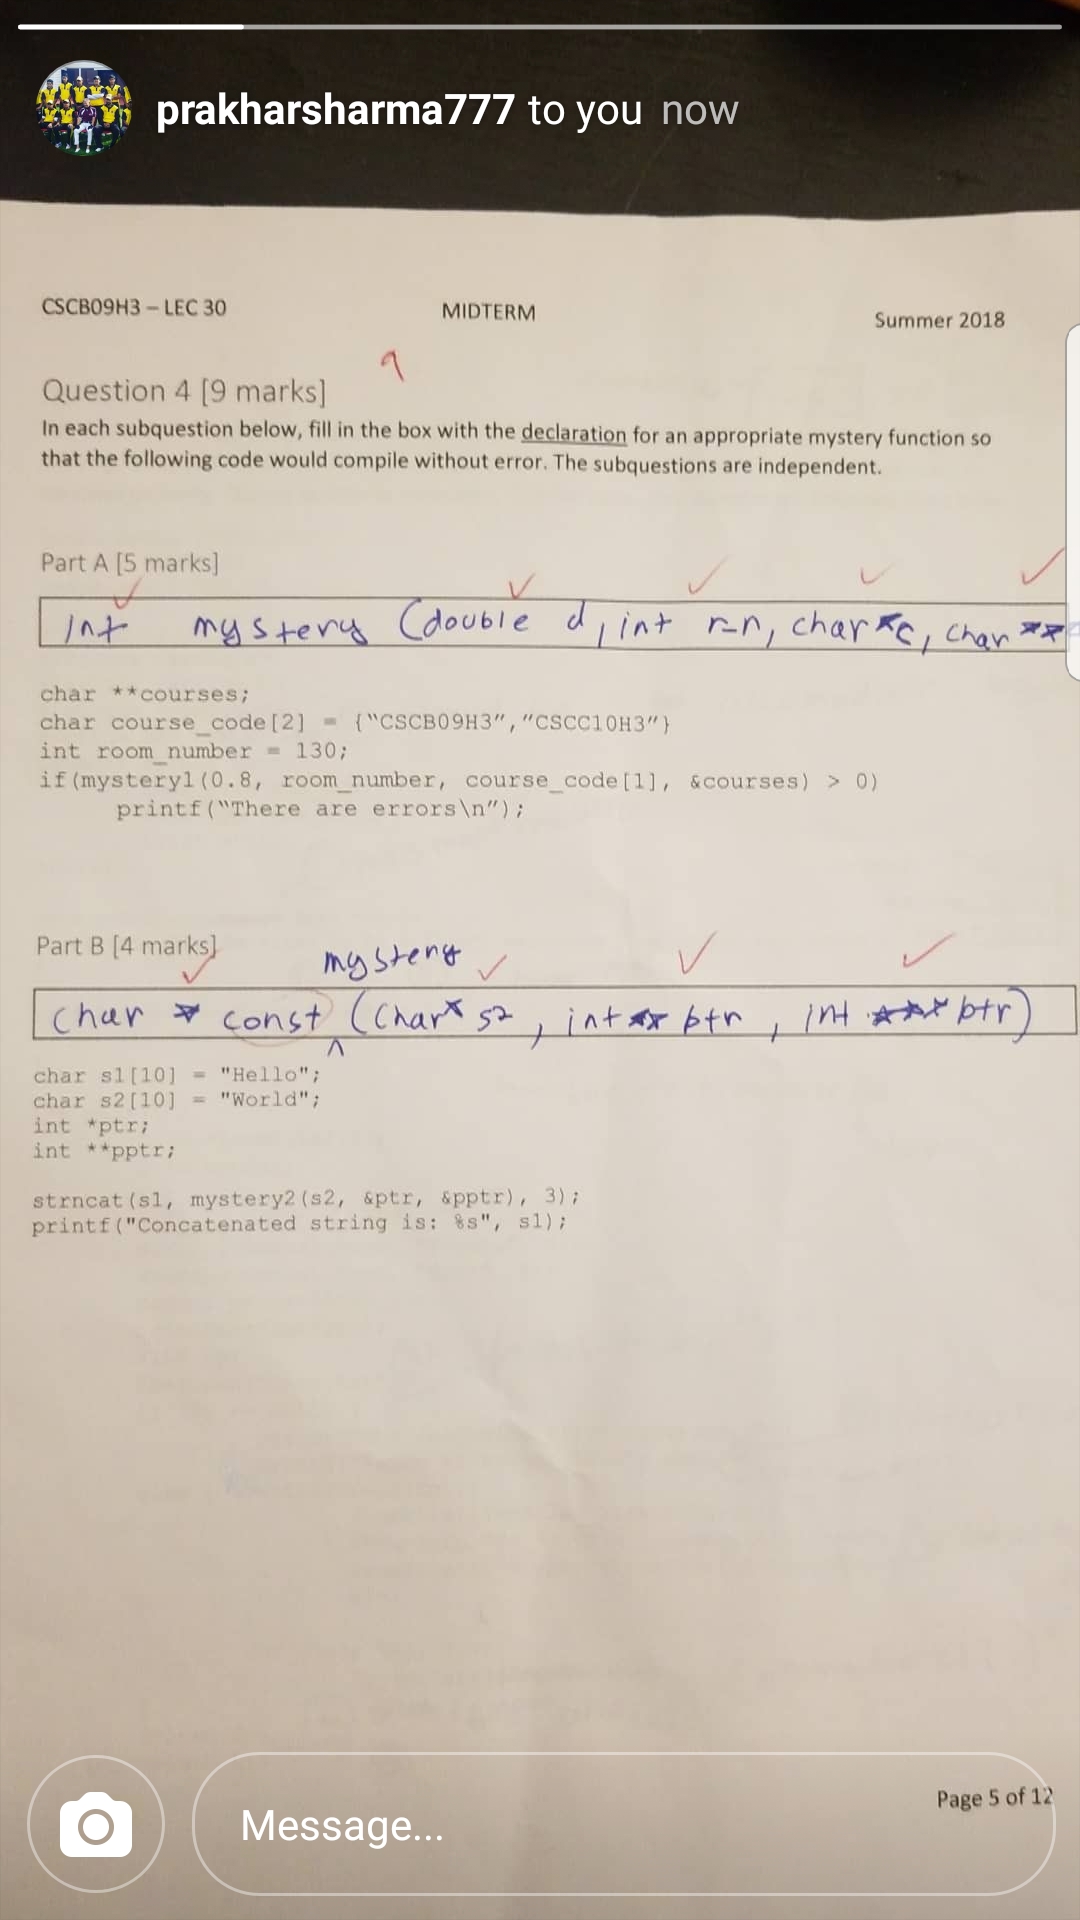 prakharsharma777 to you now
CSCB09H3 – LEC 30 MIDTERM Summer 2018
9
Question 4 [9 marks]
In each subquestion below, fill in the box with the declaration for an appropriate mystery function so
that the following code would compile without error. The subquestions are independent.
Part A [5 marks]
int mystery (double d, int r_n, char *c, char **
char **courses;
char course_code[2] = {"CSCB09H3","CSCC10H3"}
int room_number = 130;
if(mystery1(0.8, room_number, course_code[1], &courses) > 0)
printf("There are errors\n");
Part B [4 marks]
mystery
char * const (char* s2, int ** ptr, int *** ptr)
char s1[10] = "Hello";
char s2[10] = "World";
int *ptr;
int **pptr;
strncat(s1, mystery2(s2, &ptr, &pptr), 3);
printf("Concatenated string is: %s", s1);
Page 5 of 12
Message...